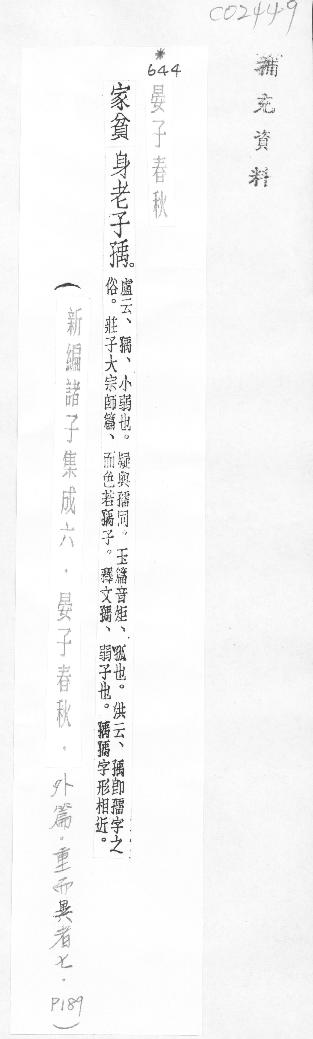 C02449
補充資料
*
644
晏子春秋
家貧身老子㺄。
盧云、㺄、小弱也。疑與孺同。玉篇音矩、孤也。洪云、㺄卽孺字之
俗。莊子大宗師篇、而色若孺子。釋文孺、弱子也。㺄孺字形相近。
(新編諸子集成六.晏子春秋.外篇.重而異者七.P189)